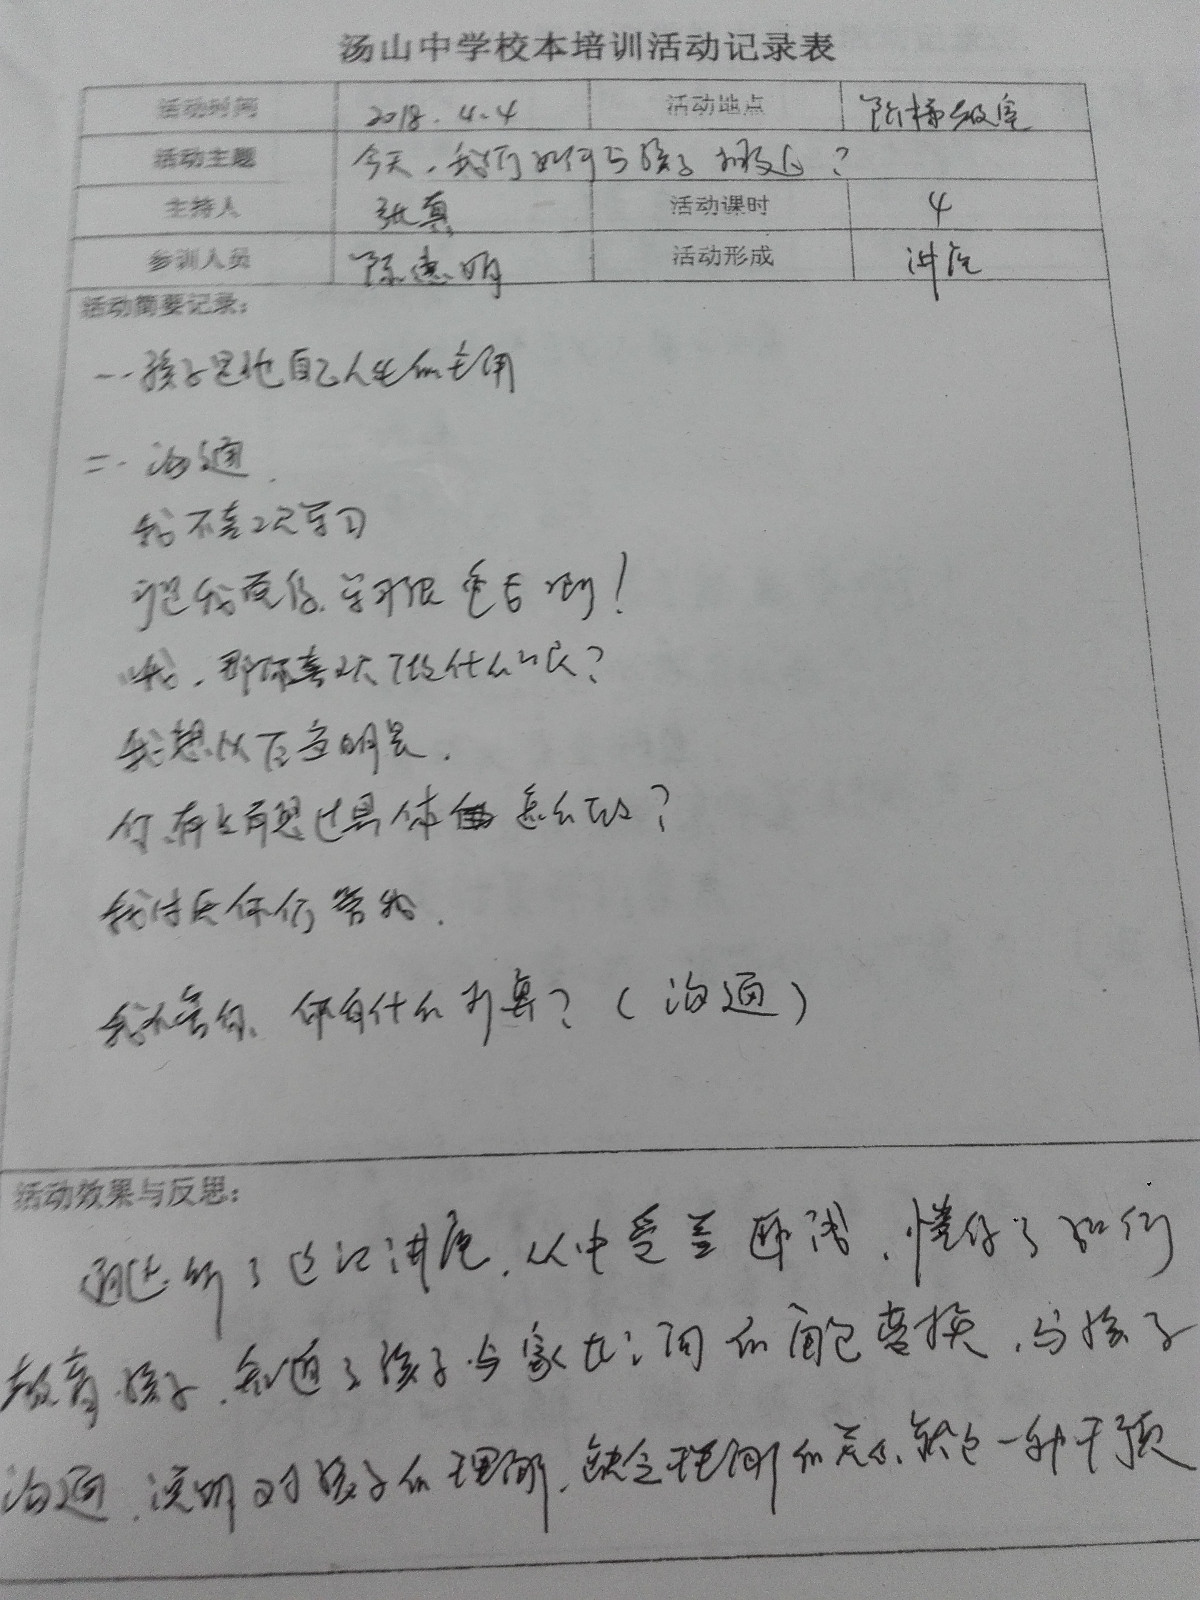 汤山中学校本培训活动记录表
活动时间 2018.4.4 活动地点 阶梯教室
活动主题 今天，我们如何与孩子相处？
主持人 张真 活动课时 4
参训人员 陈德明 活动形成 讲座
活动简要记录：
一.孩子是他自己人生的主角
二.沟通.
我不喜欢学习
我觉得,学习很
哦，那你喜欢做什么呢？
我想以后当明星.
你有没有想过具体怎么做？
我讨厌你们管我.
我不管你、你有什么打算？（沟通）
活动效果与反思：
通过听了这次讲座，从中受益匪浅，懂得了如何
教育孩子，知道了孩子与家长之间的角色替换，与孩子
沟通，说明对孩子的理解，缺乏理解的关心、就是一种干预